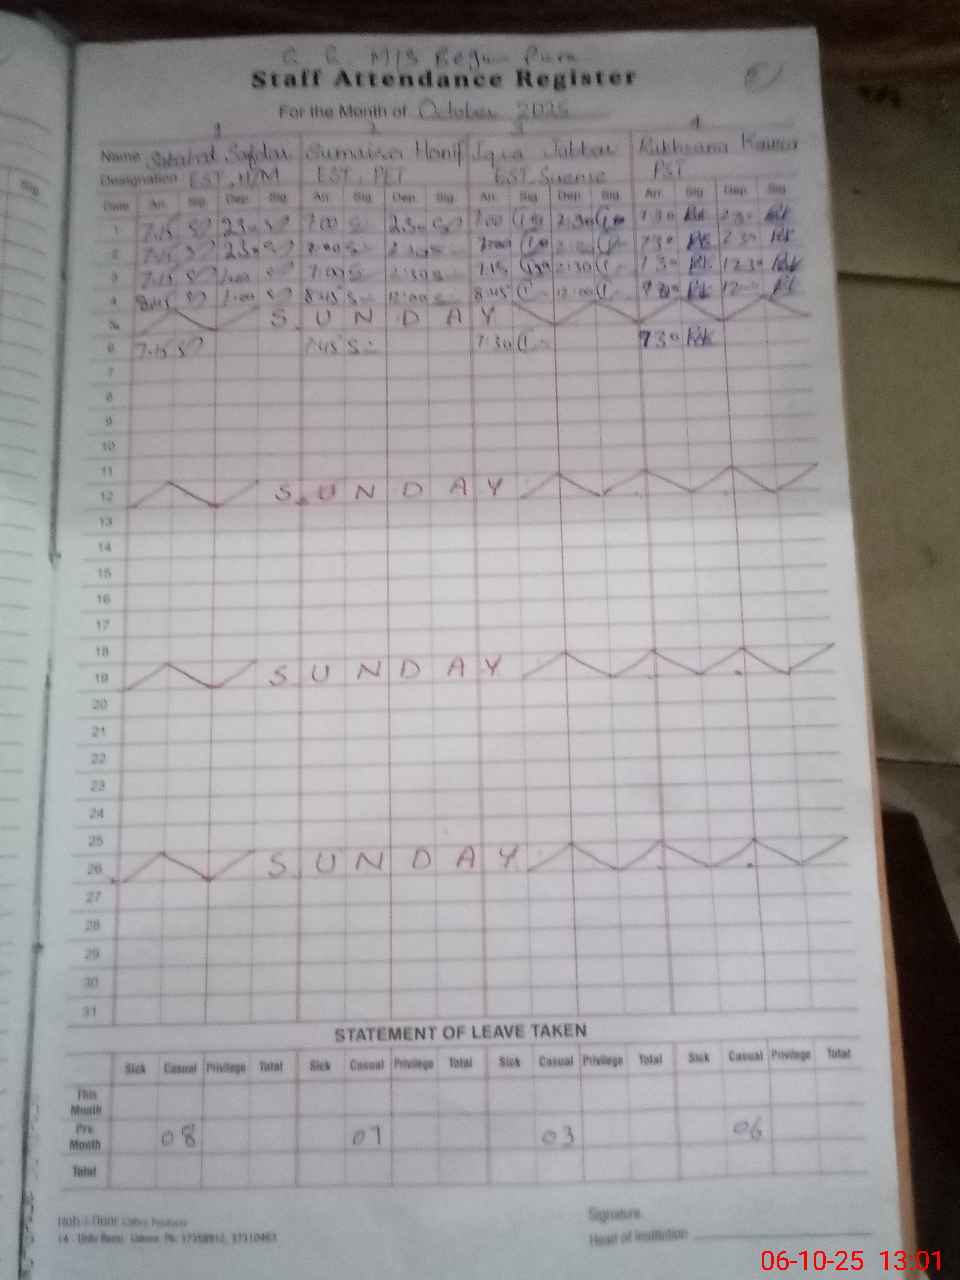 G. G. M/S Begum Pura
Staff Attendance Register
For the Month of October 2025
1 2 3 4
Name Sabahat Safdar Sumaira Hanif Iqra Jabbar Rukhsana Kausar
Designation EST, H/M EST, PET EST, Science PST
Date Arr. Sig Dep. Sig Arr. Sig Dep. Sig Arr. Sig Dep. Sig Arr. Sig Dep. Sig
1 7.15 2.30 7.00 2.30 7.00 2.30 7.30 2.30
2 7.15 2.30 7.30 2.30
3 7.15 7.00 2.30 7.15 2:30 7.30 12.30
4 8.45 8.45 12:00 8.45 12:00 7.30 12
5 S U N D A Y
6 7.15 7.45 7.30 7.30
7
8
9
10
11
12 S U N D A Y
13
14
15
16
17
18
19 S U N D A Y
20
21
22
23
24
25
26 S U N D A Y
27
28
29
30
31
STATEMENT OF LEAVE TAKEN
Sick Casual Privilege Total Sick Casual Privilege Total Sick Casual Privilege Total Sick Casual Privilege Total
This Month
Pre. Month 08 07 03 06
Total
Signature
Head of Institution
14 - Urdu Bazar, Lahore. Ph: 37358912, 37310463
06-10-25 13:01